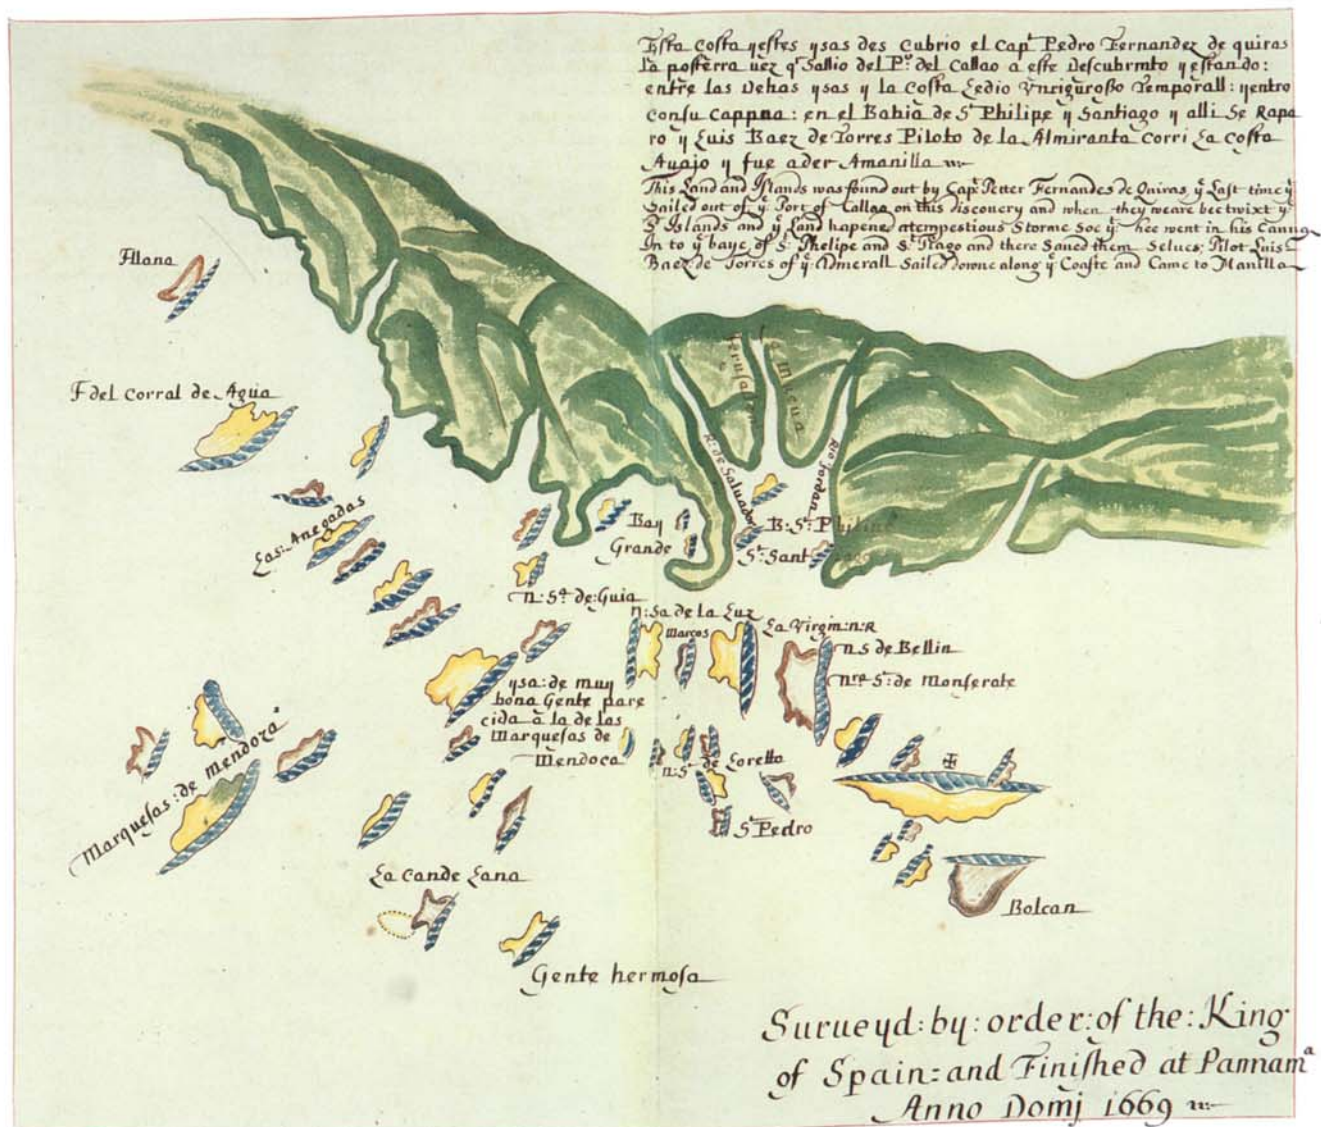 Esta Costa yestes ysas des Cubrio el Capt Pedro Fernandez de quiras
la posterra uez qe Sallio del Po. del Callao a este Descubrmto yestando:
entre las Dehas ysas y la Costa Ledio Vnriguroso Temporall: yentro
Consu Cappna: en el Bahia de St Philipe y Santiago y alli Se Rapa
ro y Luis Baez de Torres Piloto de la Almiranta Corri La Costa
Auajo y fue ader Amanilla
This Land and Islands was found out by Capt: Petter Fernandes de Quiras ye Last time ye
Sailed out of ye Port of Callao on this discouery and when they weare bee twixt ye
Sd Islands and ye Land hapened a tempestious Storme Soe yt hee went in his
In to ye baye of St: Phelipe and St: Tiago and there Saued them Selues: Pilot Luis
Baez: de Torres of ye Admerall Sailed downe along ye Coaste and Came to Manilla
Allana
F del Corral de Agua
Las: Anegadas
Jerusalem
La Mueua
R: de Saluador
Rio Jordan
Bay
Grande
B: St: Philipe
St: Sant
n: Sa de: Guia
n: Sa de la Luz
Marcos
La Virgin: n: R
n S de Bellin
nra St: de Monserate
ysa: de muy
bona Gente pare
cida à la de las
Marquesas de
Mendoca
n: St de Loretto
St Pedro
Marquesas: de Mendoza
La Cande Lana
Gente hermosa
Bolcan
Surueyd: by: order: of the: King
of Spain: and Finished at Pannama
Anno Domj 1669